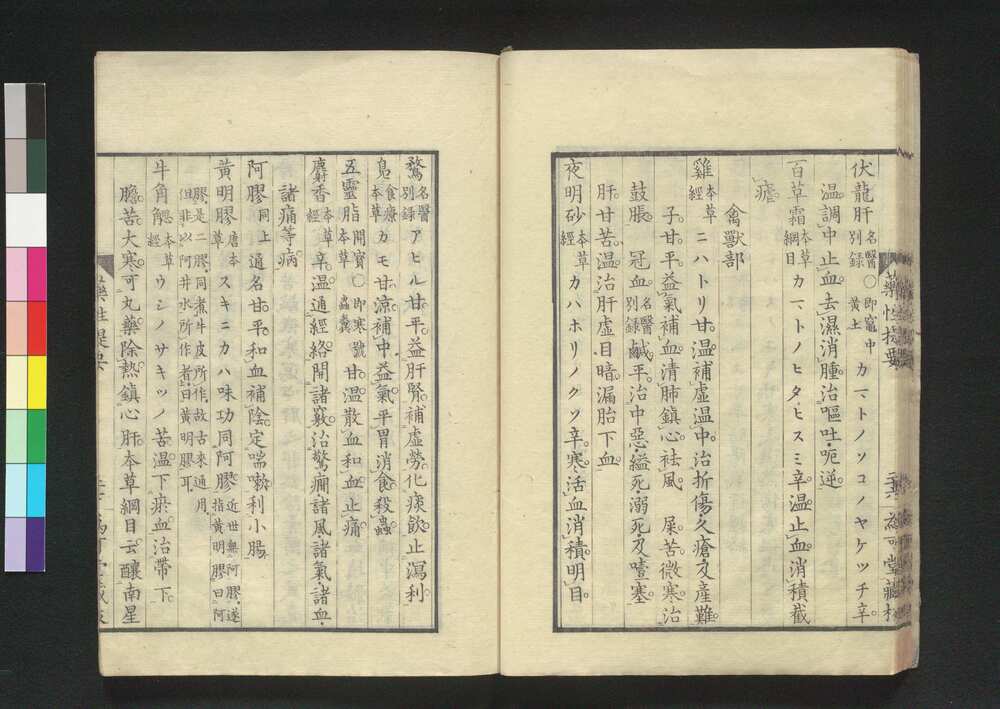 伏龍肝 名醫別錄 ○即竈中黃土 カマトノソコノヤケツチ辛
溫調中止血去濕消腫治嘔吐呃逆
百草霜 本草綱目 カマトノヒタヒスミ辛溫止血消積截
瘧
禽獸部
雞 本草經 ニハトリ甘溫補虛溫中治折傷久瘡及產難
子甘平益氣補血清肺鎮心祛風 屎苦微寒治
鼓脹 冠血 名醫別錄 鹹平治中惡縊死溺死及噎塞
肝甘苦溫治肝虛目暗漏胎下血
夜明砂 本草經 カハホリノクソ辛寒活血消積明目
藥性提要
鶩 名醫別錄 アヒル甘平益肝腎補虛勞化痰飲止瀉利
鳧 食療本草 カモ甘涼補中益氣平胃消食殺蟲
五靈脂 開寶本草 ○即寒號蟲糞 甘溫散血和血止痛
麝香 本草經 辛溫通經絡開諸竅治驚癎諸風諸氣諸血
諸痛等病
阿膠 同上 通名甘平和血補陰定喘嗽利小腸
黃明膠 唐本草 スキニカハ味功同阿膠 近世無阿膠遂指黃明膠曰阿
膠是二膠同煮牛皮所作故古來通用
但非以阿井水所作者曰黃明膠耳
牛角䚡 本草經 ウシノサキツノ苦溫下瘀血治帶下
膽苦大寒可丸藥除熱鎮心肝本草綱目云釀南星